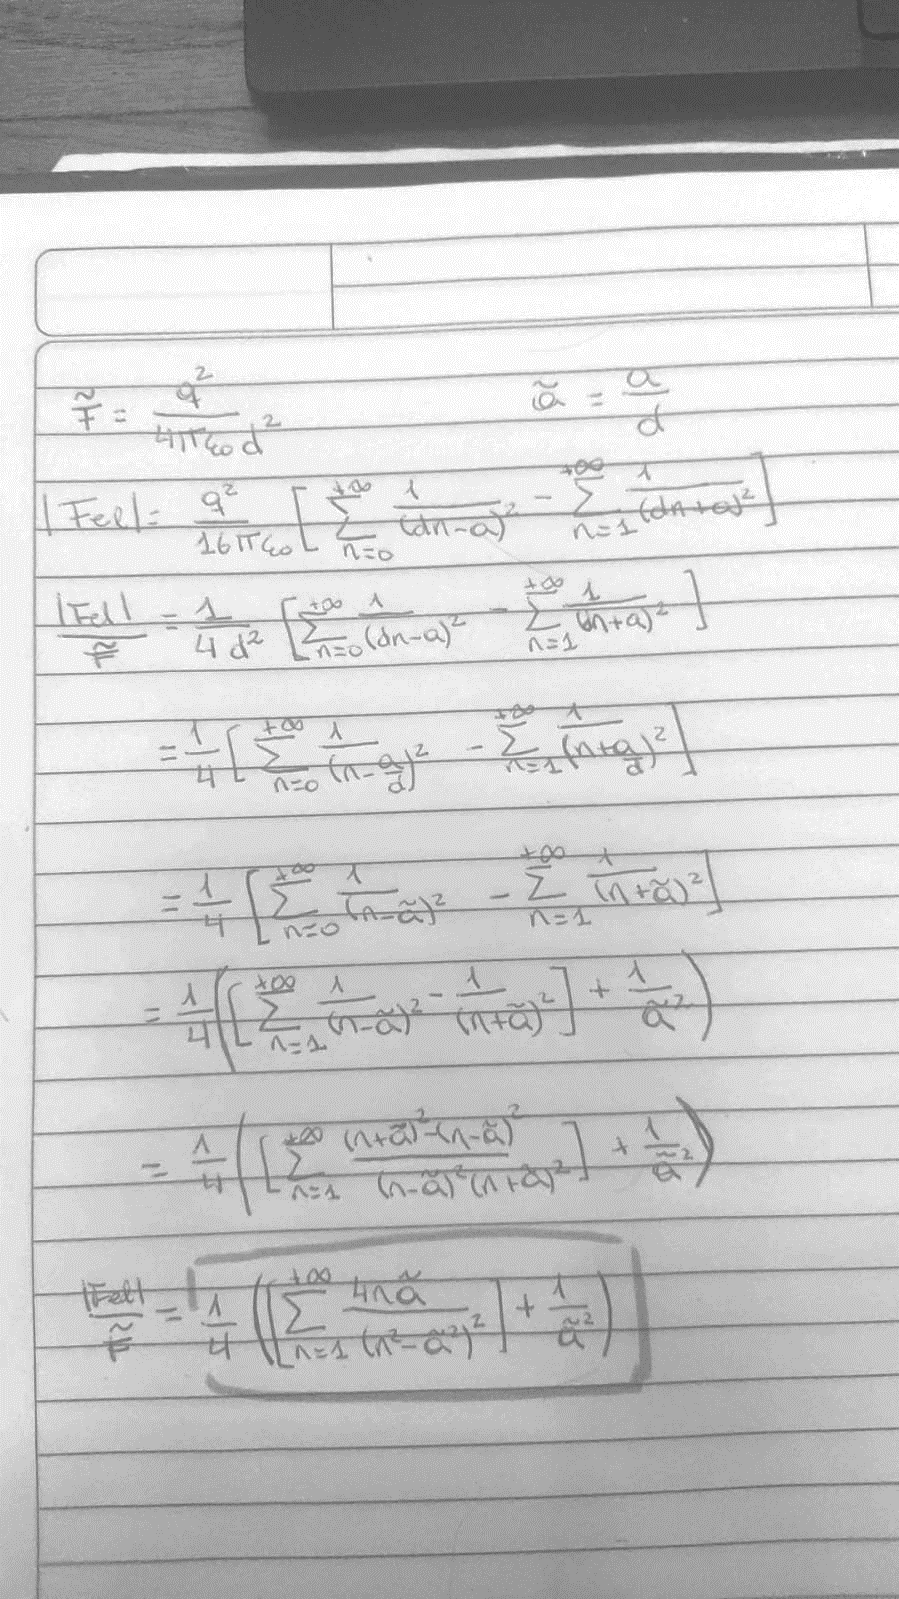 F̃ = q² / (4πε₀ d²)    ã = a/d
|Fel| = q²/(16πε₀) [ Σ_{n=0}^{+∞} 1/(dn-a)² - Σ_{n=1}^{+∞} 1/(dn+a)² ]
|Fel|/F̃ = 1/4 d² [ Σ_{n=0}^{+∞} 1/(dn-a)² - Σ_{n=1}^{+∞} 1/(dn+a)² ]
= 1/4 [ Σ_{n=0}^{+∞} 1/(n-a/d)² - Σ_{n=1}^{+∞} 1/(n+a/d)² ]
= 1/4 [ Σ_{n=0}^{+∞} 1/(n-ã)² - Σ_{n=1}^{+∞} 1/(n+ã)² ]
= 1/4 ( [ Σ_{n=1}^{+∞} 1/(n-ã)² - 1/(n+ã)² ] + 1/ã² )
= 1/4 ( [ Σ_{n=1}^{+∞} ((n+ã)²-(n-ã)²) / ((n-ã)²(n+ã)²) ] + 1/ã² )
|Fel|/F̃ = 1/4 ( [ Σ_{n=1}^{+∞} 4nã/(n²-ã²)² ] + 1/ã² )